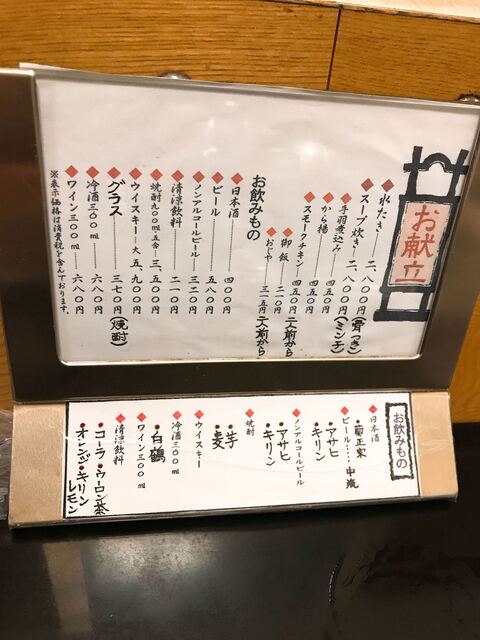 お献立
水たき……二、八〇〇円(骨つき)
スープ炊き…二、八〇〇円(ミンチ)
手羽煮込み…四五〇円
から揚…四五〇円
スモークチキン…四五〇円
御飯…二一〇円
おじや…三一五円二人前から
二人前から
お飲みもの
日本酒……四〇〇円
ビール……五八〇円
ノンアルコールビール…三二〇円
清涼飲料……二一〇円
焼酎九〇〇ml五合…三、五〇〇円
ウイスキー大五、九〇〇円
グラス……三七〇円(焼酎)
冷酒三〇〇ml……六八〇円
ワイン三〇〇ml……六八〇円
※表示価格は消費税を含んでおります。
お飲みもの
日本酒
・菊正宗
ビール……中瓶
・アサヒ
・キリン
ノンアルコールビール
・アサヒ
・キリン
焼酎
・芋
・麦
ウイスキー
冷酒三〇〇ml
・白鶴
ワイン三〇〇ml
清涼飲料
・コーラ・ウーロン茶
・オレンジ・キリンレモン